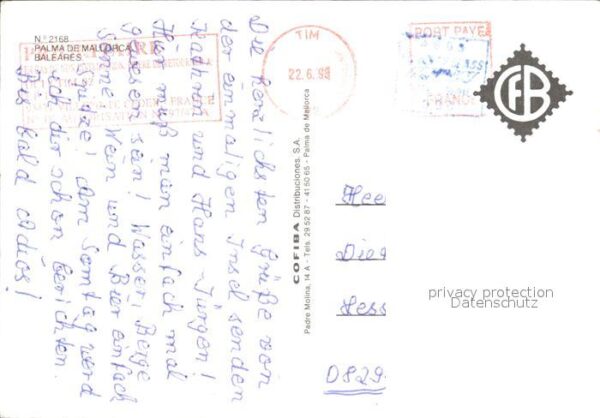 N.º 2168
PALMA DE MALLORCA
BALEARES
Die herzlichsten Grüße von
der einmaligen Insel senden
Kathrin und Hans-Jürgen!
Hier muß man einfach mal
gewesen sein! Wasser, Berge
Sonne Wein und Bier einfach
Spitze! Am Samstag werd
ich dir schon berichten.
Bis bald Adios!
COFIBA Distribuciones, S.A.
Padre Molina, 14 A - Tels. 29 52 87 - 41 50 65 - Palma de Mallorca
TIM
22.6.95
PORT PAYE
FRANCE
CFB
Dieg
Hess
D 829
privacy protection
Datenschutz